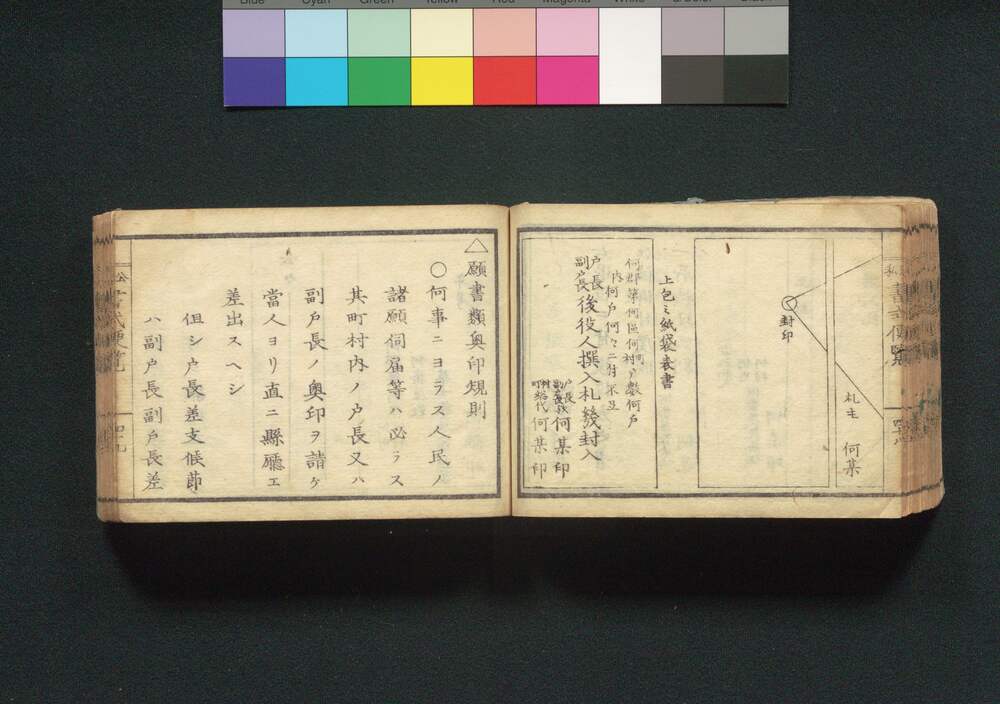 Blue Cyan Green Yellow Red Magenta White 3/Color Black
札主 何某
封印
上包ミ紙袋表書
何郡第何區何村戸數何戸
内何戸何々ニ付不足
戸長
副戸長
後役人撰入札幾封入
戸長
何某印
町村総代
何某印
△願書類奥印規則
○何事ニヨラス人民ノ
諸願伺届等ハ必ラス
其町村内ノ戸長又ハ
副戸長ノ奥印ヲ請ケ
當人ヨリ直ニ縣廳エ
差出スヘシ
但シ戸長差支候節
ハ副戸長副戸長差